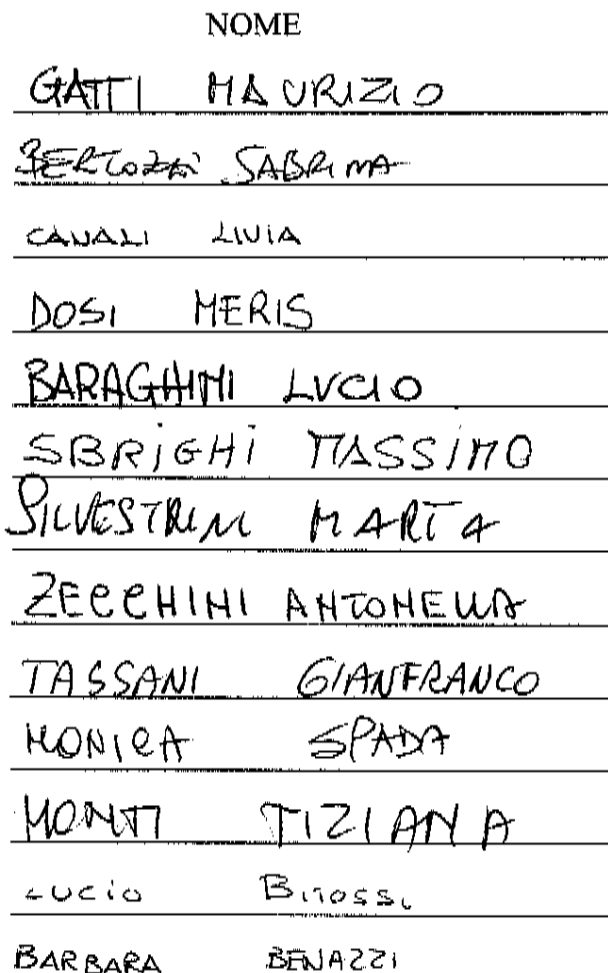 NOME
GATTI MAURIZIO
BERTOZZI SABRINA
CANALI LIVIA
DOSI MERIS
BARAGHINI LUCIO
SBRIGHI MASSIMO
SILVESTRINI MARTA
ZECCHINI ANTONELLA
TASSANI GIANFRANCO
MONICA SPADA
MONTI TIZIANA
LUCIO BITOSSI
BARBARA BENAZZI